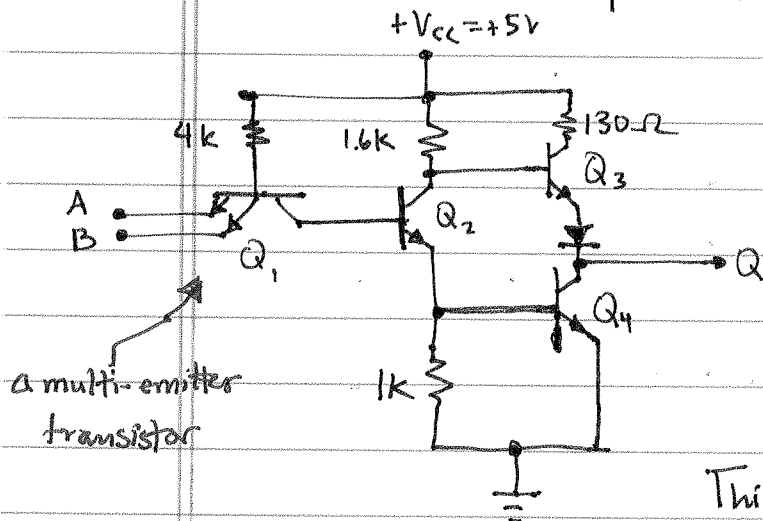 +Vcc=+5V
4k
1.6K
130Ω
Q3
A
B
Q1
Q2
Q
Q4
a multi-emitter
transistor
1K
Thi